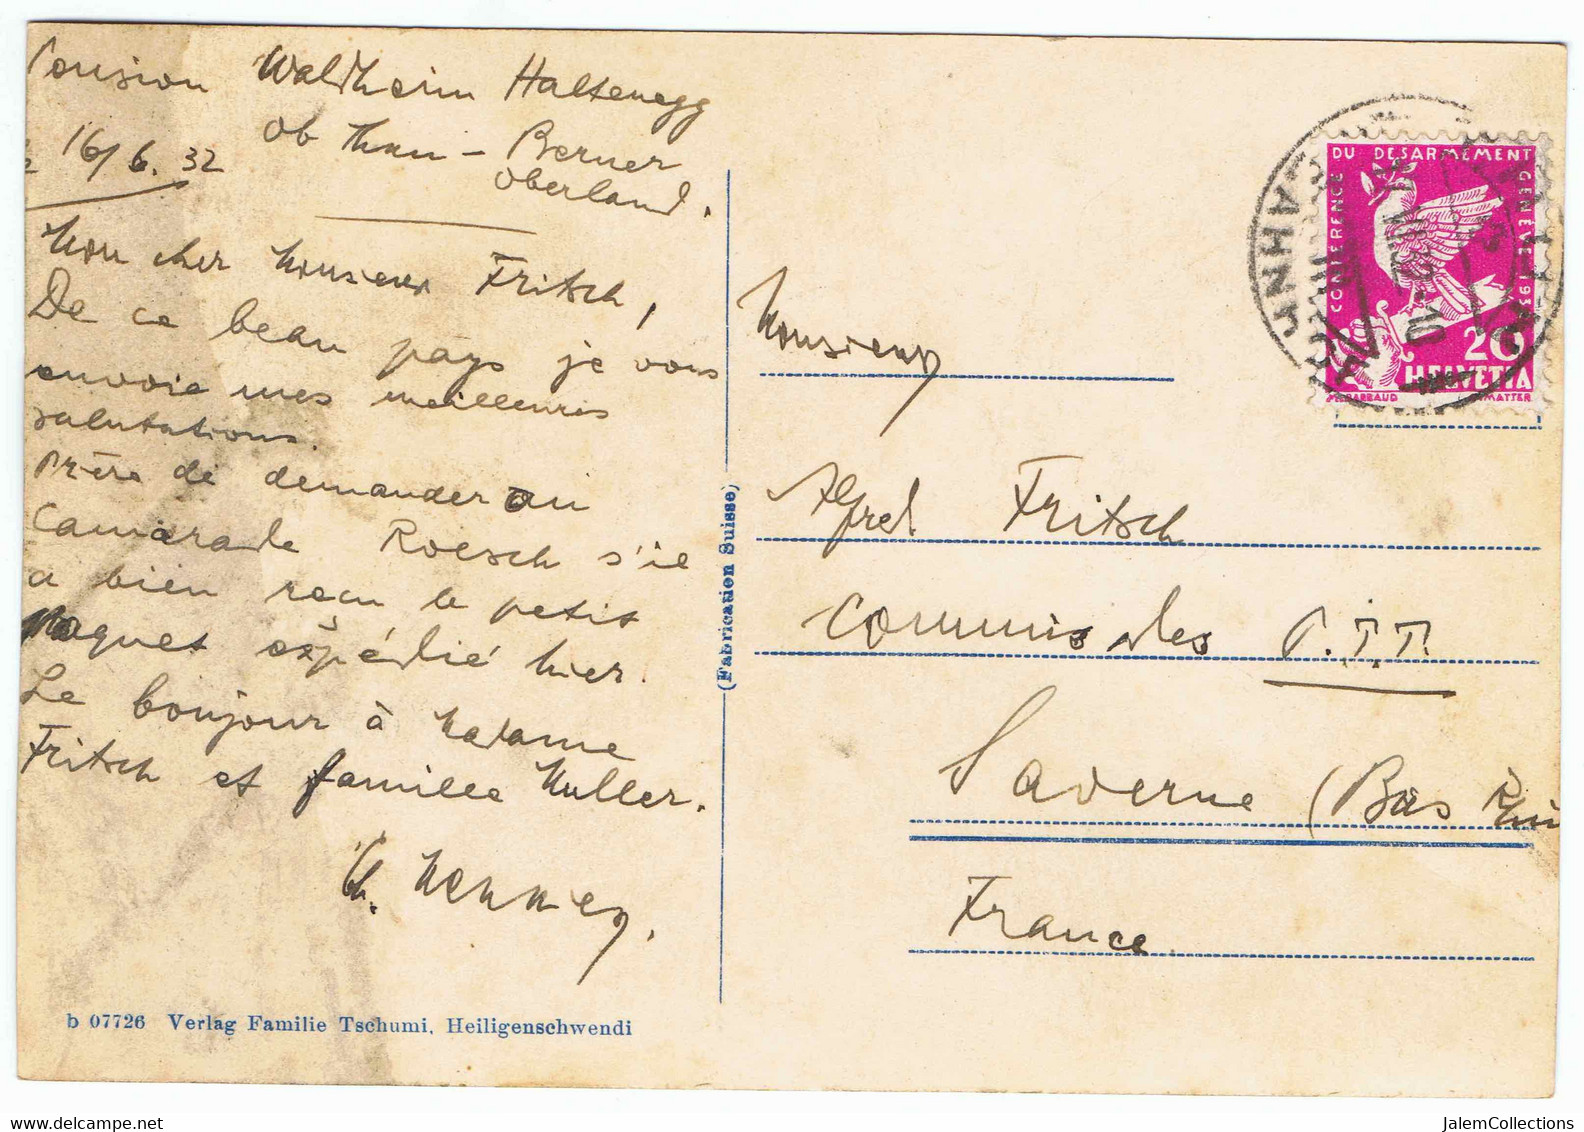 Pension Waldheim Haltenegg
ob Thun - Berner
Oberland.
16/6. 32
Mon cher Monsieur Fritsch,
De ce beau pays je vous
envoie mes meilleures
salutations.
Prère de demander au
Camarade Roesch s'il
a bien reçu le petit
paquet expédié hier.
Le bonjour à Madame
Fritsch et famille Muller.
b 07726 Verlag Familie Tschumi, Heiligenschwendi
(Fabrication Suisse)
CONFERENCE DU DESARMEMENT GENEVE
20
HELVETIA
Monsieur
Alfred Fritsch
Commis des P.T.T.
Saverne (Bas Rhin
France
JalemCollections